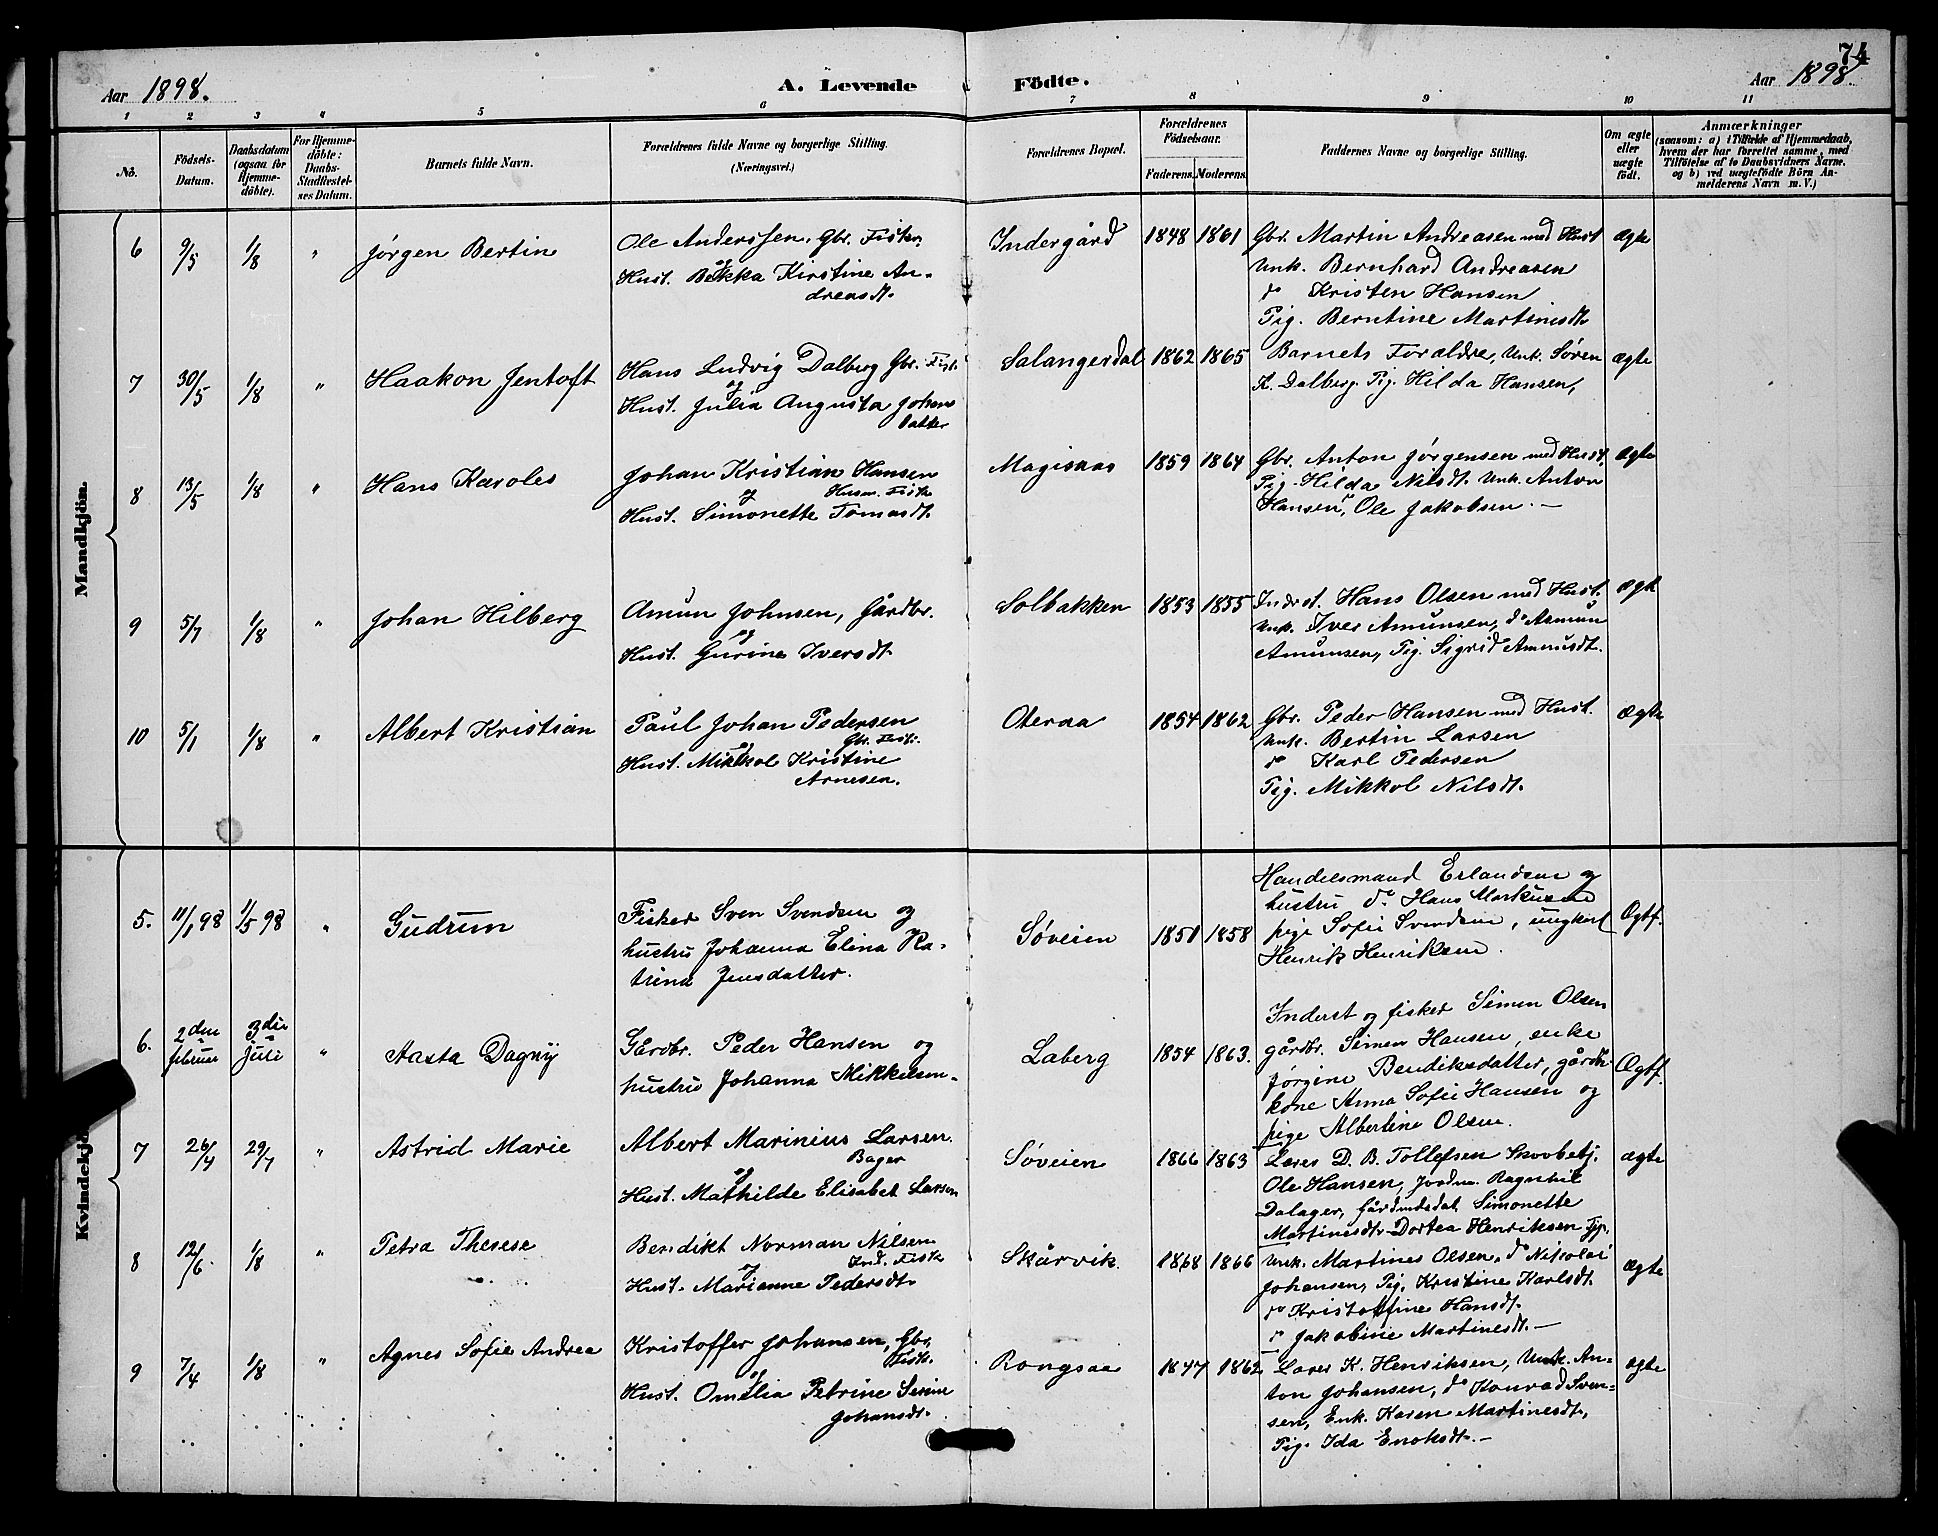 74
Aar 1898.
A. Levende Födte.
Aar 1898
1 2 3 4 5 6 7 8 9 10 11
No.
Födsels-Datum.
Daabsdatum (ogsaa for Hjemmedöbte).
For Hjemmedöbte: Daabs-Stadfestelses Datum.
Barnets fulde Navn.
Forældrenes fulde Navne og borgerlige Stilling. (Næringsvei.)
Forældrenes Bopæl.
Forældrenes Födselsaar.
Faderens. Moderens.
Faddernes Navne og borgerlige Stilling.
Om ægte eller uægte födt.
Anmærkninger
(saasom: a) i Tilfælde af Hjemmedaab, hvem der har forrettet samme, med Tilföielse af to Daabsvidners Navne. og b) ved uægtefödte Börn Anmelderens Navn m. V.)
Mandkjön.
6 9/5 1/8 " Jørgen Bertin
Ole Anderssen, Gbr. Fisker.
og
Hust. Bekka Kirstine An-
dreasdt.
Indergård 1848 1861
Gbr. Martin Andreasen med Hust
Unk. Bernhard Andreasen
do Kristen Hansen
Pig. Berntine Martinsdt
ægte
7 30/5 1/8 " Haakon Jentoft
Hans Ludvig Dalberg Gbr. Fisk.
og
Hust. Julia Augusta Johans
datter
Salangerdal 1862 1865
Barnets Forældre, Unk. Sören
K. Dalberg. Pig. Hilda Hansen,
ægte
8 13/5 1/8 " Hans Karoles
Johan Kristian Hansen
og Husm. Fisk
Hust. Simonette Tomasdt.
Magisnas 1859 1864
Gbr. Anton Jørgensen med Hust,
Pig. Hilda Nilsdt. Unk. Anton
Hansen, Ole Jakobsen. —
ægte
9 5/7 1/8 " Johan Hilberg
Amun Johnsen, Gårdbr.
og
Hust. Gurine Iversdt.
Solbakken 1853 1855
Inderst. Hans Olsen med Hust.
Unk. Iver Amunsen, do Asmun
Amunsen, Pig. Sigrid Amunsdt.
ægte
10 5/1 1/8 " Albert Kristian
Paul Johan Pedersen
og Gbr. Fisk.
Hust. Mikkol Kristine
Arnesen.
Oteraa 1854 1862
Gbr. Peder Hansen med Hust.
Unk. Bertin Larsen
do Karl Pedersen
Pig. Mikkol Nilsdt.
ægte
Kvindekjön
5. 11/1 98 1/5 98 " Gudrun
Fisker Sven Svendsen og
hustru Johanna Elina Ka-
trina Jensdatter.
Søveien 1858
Handelsmand Erlandsen og
hustru do Hans Markusen
pige Sofie Svendsen, ungkarl
Henrik Henriksen.
Ægtf.
6. 2den februar 3die juli " Aasta Dagny
Gårdbr. Peder Hansen og
hustru Johanna Mikkelsen.
Laberg 1854 1863.
Inderst og fisker Simen Olsen
gårdbr. Simen Hansen, enke
Jørgine Bendiksdatter, gårdbr
kone Anna Sofie Hansen og
pige Albertine Olsen.
Ægtf.
7 26/4 29/7 " Astrid Marie
Albert Marinius Larsen.
Bager
og
Hust. Mathilde Elisabet Larsen
Søveien 1866 1863
Lærer D. B. Tollefsen Skovbetj.
Ole Hansen, Jordm. Ragnhil
Dalager, Gårdmdsdat. Simonette
Martinesdtr. Dortea Henriksen Tjp.
ægte
8 12/6. 1/8 " Petra Therese
Benedikt Norman Nilsen
og Ind. Fisk
Hust. Marianne Pedersdt.
Skårvik. 1868 1866
Unk. Martines Olsen, do Nikolai
Johansen, Pig. Kristine Karlsdt.
do Kristoffine Hansdt.
do Jakobine Martinesdt. —
ægte
9 7/4 1/8 " Agnes Sofie Andrea
Kristoffer Johansen, Gbr.
Fisk.
og
Hust. Omelia Petrine Serine
Johansdt.
Rongsaa 1847 1862
Lærer K. Henriksen, Unk. An-
ton Johansen, do Konrad Sven-
sen, Enk. Karen Martinesdt,
Pig. Ida Enoksdt. —
ægte